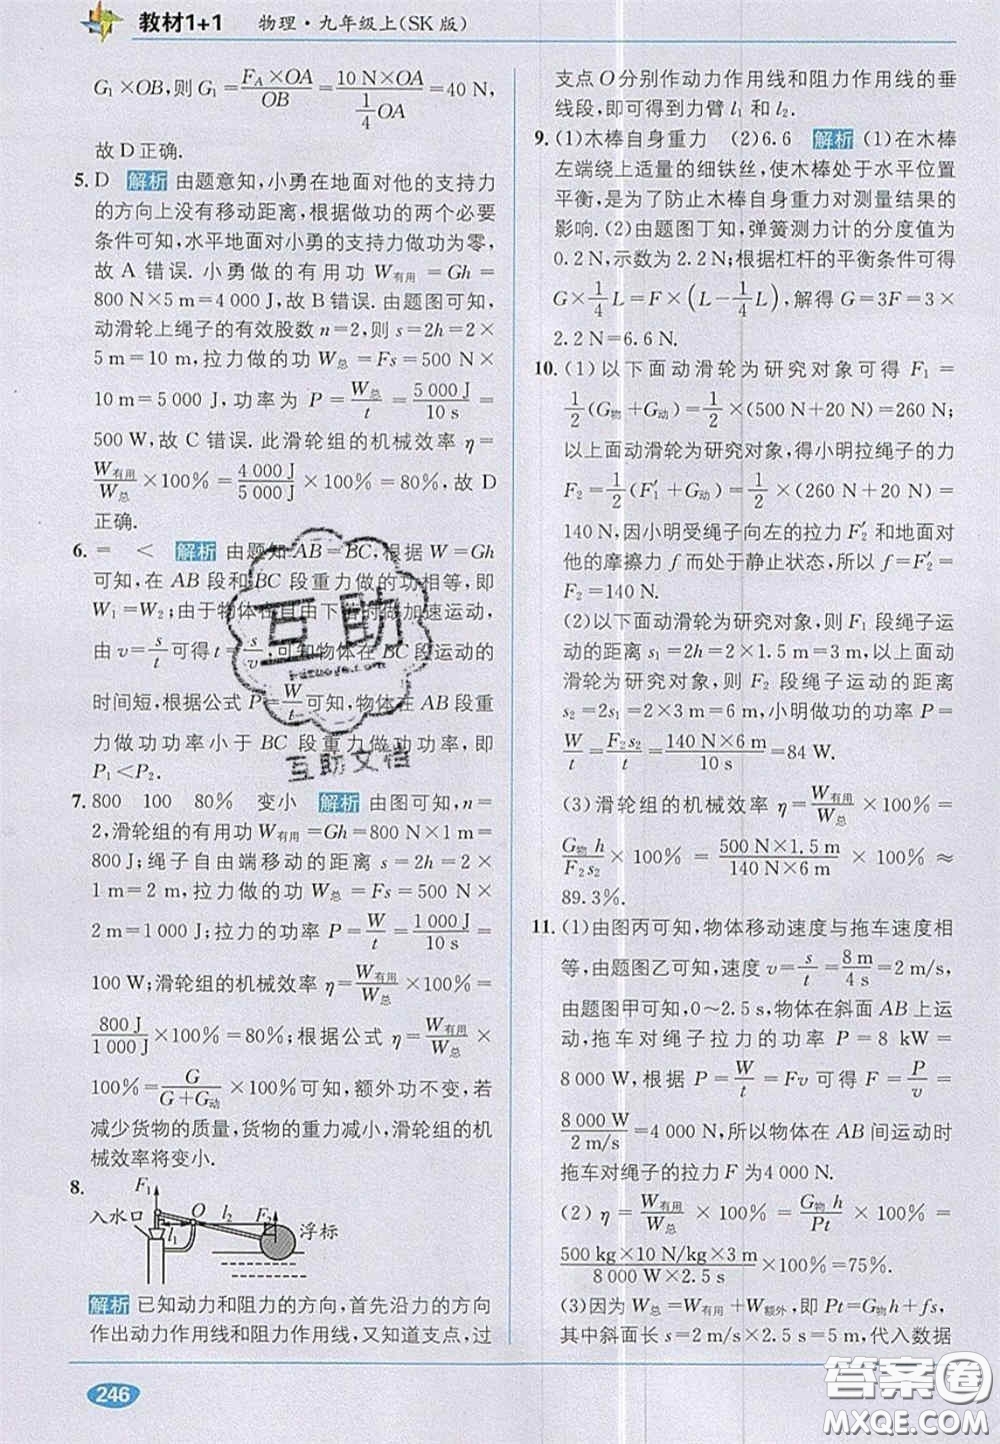 教材1+1 物理·九年级上(SK版)
G₁×OB,则G₁=F_A×OA/OB=10 N×OA/(1/4 OA)=40 N,
故D正确.
5. D 解析 由题意知,小勇在地面对他的支持力
的方向上没有移动距离,根据做功的两个必要
条件可知,水平地面对小勇的支持力做功为零,
故A错误.小勇做的有用功W有用=Gh=
800 N×5 m=4 000 J,故B错误.由题图可知,
动滑轮上绳子的有效股数n=2,则s=2h=2×
5 m=10 m,拉力做的功W总=Fs=500 N×
10 m=5 000 J,功率为P=W总/t=5 000 J/10 s=
500 W,故C错误.此滑轮组的机械效率η=
W有用/W总×100%=4 000 J/5 000 J×100%=80%,故D
正确.
6. = < 解析 由题知AB=BC,根据W=Gh
可知,在AB段和BC段重力做的功相等,即
W₁=W₂;由于物体在自由下落时做加速运动,
由v=s/t可得t=s/v,可知物体在BC段运动的
时间短,根据公式P=W/t可知,物体在AB段重
力做功功率小于BC段重力做功功率,即
P₁<P₂.
7. 800 100 80% 变小 解析 由图可知,n=
2,滑轮组的有用功W有用=Gh=800 N×1 m=
800 J;绳子自由端移动的距离s=2h=2×
1 m=2 m,拉力做的功W总=Fs=500 N×
2 m=1 000 J;拉力做功的功率P=W/t=1 000 J/10 s=
100 W;滑轮组的机械效率η=W有用/W总×100%
=800 J/1 000 J×100%=80%;根据公式η=W有用/W总×
100%=G/(G+G动)×100%可知,额外功不变,若
减少货物的质量,货物的重力减小,滑轮组的机
械效率将变小.
8.
F₁
入水口
O
l₁
l₂
F₂
浮标
解析 已知动力和阻力的方向,首先沿力的方向
作出动力作用线和阻力作用线,又知道支点,过
支点O分别作动力作用线和阻力作用线的垂
线段,即可得到力臂l₁和l₂.
9. (1)木棒自身重力 (2)6.6 解析 (1)在木棒
左端绕上适量的细铁丝,使木棒处于水平位置
平衡,是为了防止木棒自身重力对测量结果的
影响.(2)由题图丁知,弹簧测力计的分度值为
0.2 N,示数为2.2 N;根据杠杆的平衡条件可得
G×1/4 L=F×(L-1/4 L),解得G=3F=3×
2.2 N=6.6 N.
10. (1)以下面动滑轮为研究对象可得F₁=
1/2(G物+G动)=1/2×(500 N+20 N)=260 N;
以上面动滑轮为研究对象,得小明拉绳子的力
F₂=1/2(F₁′+G动)=1/2×(260 N+20 N)=
140 N,因小明受绳子向左的拉力F₂′和地面对
他的摩擦力f而处于静止状态,所以f=F₂′=
F₂=140 N.
(2)以下面动滑轮为研究对象,则F₁段绳子运
动的距离s₁=2h=2×1.5 m=3 m;以上面动滑
轮为研究对象,则F₂段绳子运动的距离
s₂=2s₁=2×3 m=6 m,小明做功的功率P=
W/t=F₂s₂/t=140 N×6 m/10 s=84 W.
(3)滑轮组的机械效率η=W有用/W总×100%=
G物h/F₂s₂×100%=500 N×1.5 m/140 N×6 m×100%≈
89.3%.
11. (1)由图丙可知,物体移动速度与拖车速度相
等,由题图乙可知,速度v=s/t=8 m/4 s=2 m/s,
由题图甲可知,0~2.5 s,物体在斜面AB上运
动,拖车对绳子拉力的功率P=8 kW=
8 000 W,根据P=W/t=Fv可得F=P/v=
8 000 W/2 m/s=4 000 N,所以物体在AB间运动时
拖车对绳子的拉力F为4 000 N.
(2)η=W有用/W总×100%=G物h/Pt×100%=
500 kg×10 N/kg×3 m/8 000 W×2.5 s×100%=75%.
(3)因为W总=W有用+W额外,即Pt=G物h+fs,
其中斜面长s=2 m/s×2.5 s=5 m,代入数据
246
互助
互助文档
答案圈
MXQE.COM